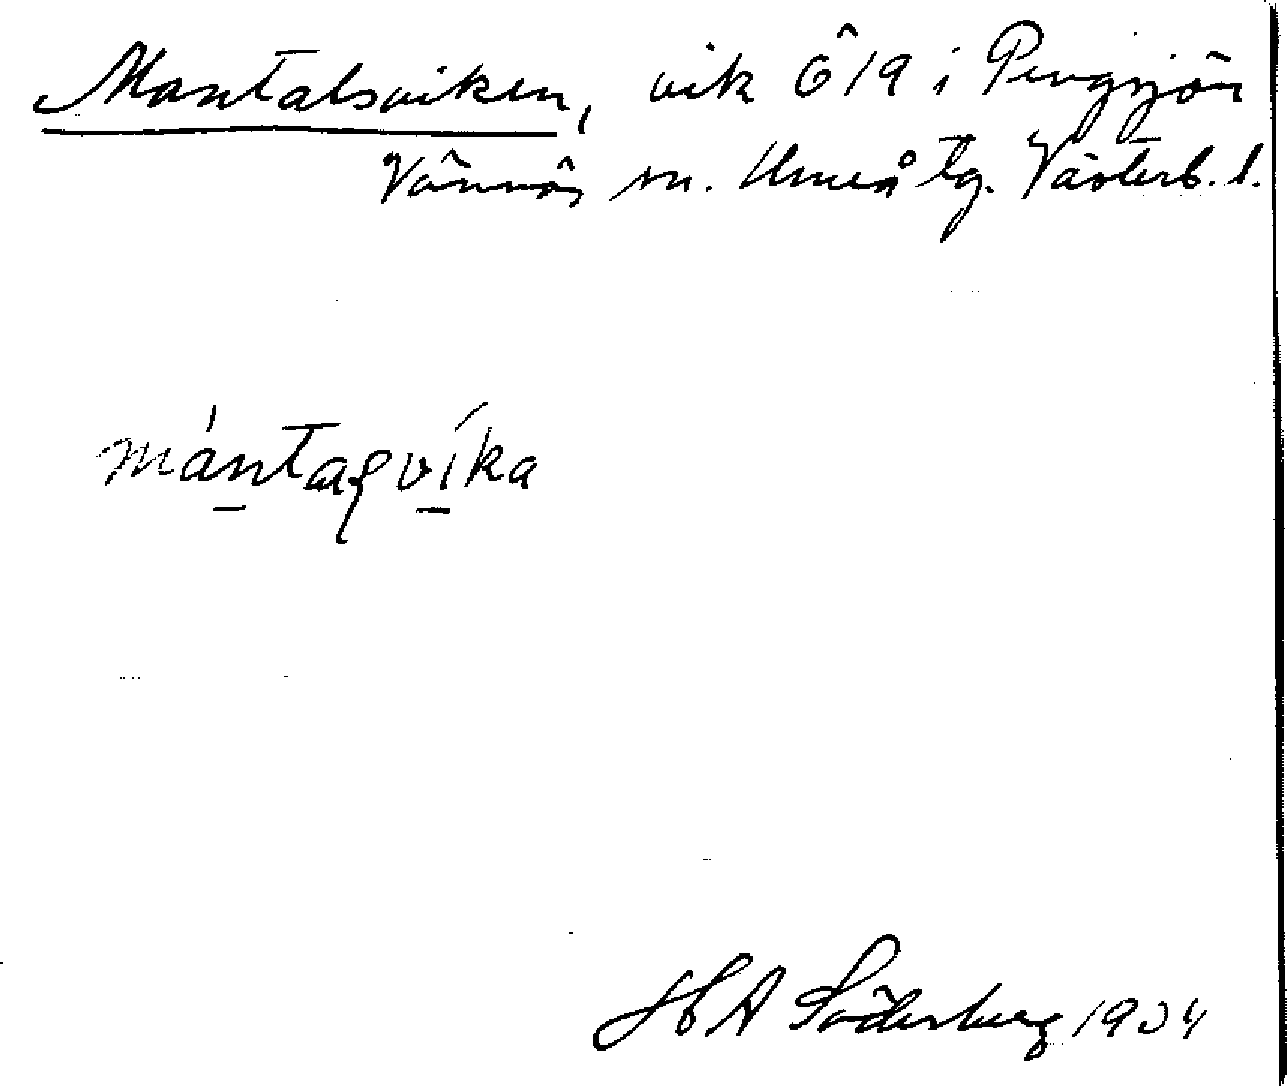 Mantalsviken, vik Ö 19 i Pengsjön
Vännäs sn. Umeå tg. Västerb. l.
mántaʂvíka
H A Söderberg 1934